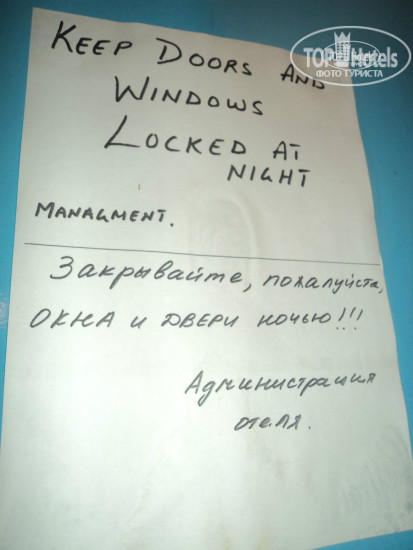 TOP Hotels
ФОТО ТУРИСТА
KEEP DOORS AND
WINDOWS
LOCKED AT
NIGHT
MANAGMENT.
Закрывайте, пожалуйста,
ОКНА и ДВЕРИ ночью!!!
Администрация
отеля.